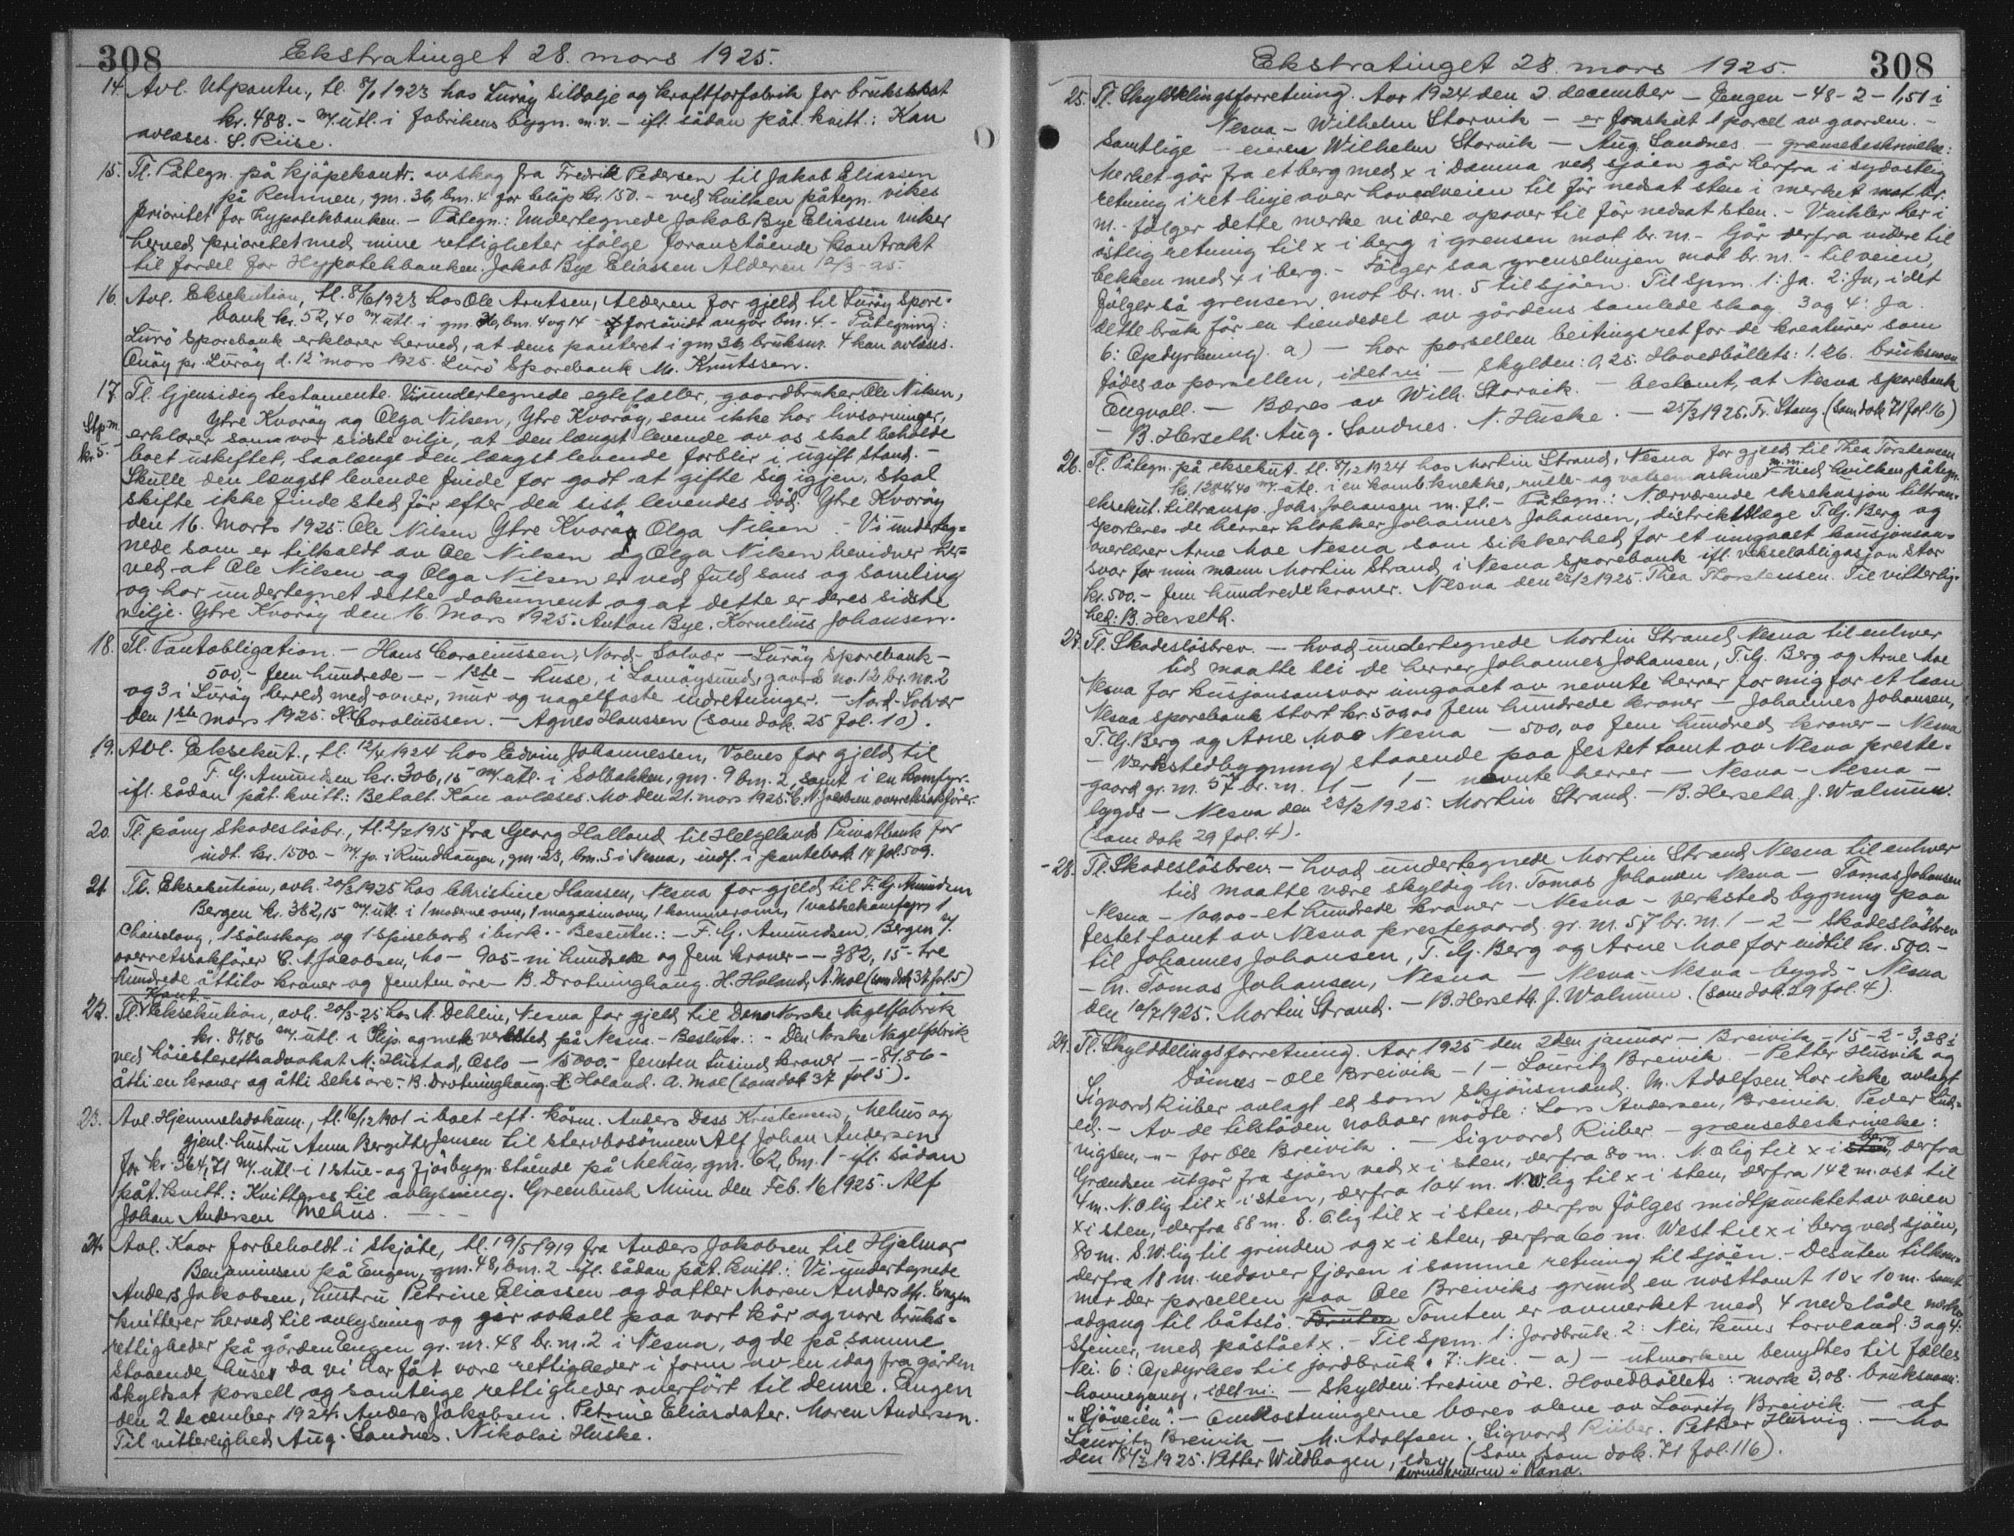 308
Ekstratinget 28. mars 1925.
14. Avl. Utpantn., tl. 8/1 1923 hos Luröy Sildolje og kraftforfabrik for bruksskat
kr. 488.- m/utl. i fabrikens bygn. m.v. - ifl. sådan påt. kvitt.: Kan
avlæses. S. Riise.
15. Tl. Påtegn. på kjöpekontr. av skog fra Fredrik Pedersen til Jakob Eliassen
på Remmen, gm. 36, bm. 4 for belöp kr. 150. - ved hvilken påtegn. vikes
prioritet for Hypotekbanken. - Påtegn.: Undertegnede Jakob Bye Eliassen viker
herved prioritet med mine rettigheter ifölge foranstående kontrakt
til fordel for Hypotekbanken. Jakob Bye Eliassen Alderen 12/3-25
16. Avl. Eksekution, tl. 8/6 1923 hos Ole Arntsen, Alderen for gjeld til Luröy Spare-
bank kr. 52,40 m/utl. i gm. 36, bm. 4 og 14 - forsåvidt angår bm. 4. - Påtegning:
Lurö Sparebank erklærer herved, at dens panteret i gm 36 bruksnr. 4 kan avlæses.
Onöy pr. Luröy d. 12 mars 1925. Lurö Sparebank M. Knutssen.
17. Tl. Gjensidig testamente. Vi undertegnede egtefæller, gaardbruker Ole Nilsen,
Ytre Kvaröy og Olga Nilsen, Ytre Kvaröy, som ikke har livsarvinger,
Stp.m.
kr. 5.-
erklærer som vor sidste vilje, at den længst levende av os skal beholde
boet uskiftet, saalænge den længst levende forblir i ugift stand. -
Skulle den længst levende finde for godt at gifte sig igjen, skal
skifte ikke finde sted för efter den sist levendes död. Ytre Kvaröy
den 16. Marts 1925. Ole Nilsen Ytre Kvaröy Olga Nilsen - Vi underteg-
nede som er tilkaldt av Ole Nilsen og Olga Nilsen bevidner her-
ved at Ole Nilsen og Olga Nilsen er ved fuld sans og samling
og har undertegnet dette dokument og at dette er deres sidste
vilje. Ytre Kvaröy den 16. Mars 1925. Anton Bye. Kornelius Johansen.
18. Tl. Pantobligation. - Hans Caroliussen, Nord-Solvær - Luröy sparebank -
500,- fem hundrede - - 1ste - huse, i Lamöysund, gaards no. 12 br. no. 2
og 3 i Luröy herred med ovner, mur og nagelfaste indretninger. - Nord-Solvær
den 1ste mars 1925. H. Caroliussen. - Agnes Hanssen (som dok. 25 fol. 10).
19. Avl. Eksekut., tl. 12/4 1924 hos Edvin Johannessen, Valnes for gjeld til
F. G. Amundsen kr. 306,15 m/utl. i Solbakken, gm. 9 bm. 2, samt i en komfyr.
ifl. sådan påt. kvitt.: Betalt. Kan avlæses. Mo den 21. mars 1925. C. M. Jacobsen overretssakförer.
20. Tl. påny Skadeslösbr., tl. 2/2 1915 fra Georg Halland til Helgelands Privatbank for
indt. kr. 1500. - m/p. i Rundhaugen, gm. 23, bm. 5 i Nesna, indf. i pantebok 14 fol. 509.
21. Tl. Eksekution, avh. 20/3 1925 hos Christine Hanssen, Nesna for gjeld til F. G. Amundsen
Bergen kr. 382,15 m/utl. i 1 moderne ovn, 1 magasinovn, 1 kammerovn, 1 vaskekomfyr, 1
chaiselong, 1 sölvskap og 1 spisebord i birk. - Beslutn.: - F. G. Amundsen, Bergen v/
overretssakförer C. M. Jacobsen, Mo - 905 - ni hundrede og fem kroner - - 382,15 - tre
hundrede åttito kroner og femten öre - B. Drotninghaug. H. Holand, A. Moe (som dok 37 fol. 5)
22. Tl. Kont. Eksekution, avh. 20/3-25 hos M. Dehlin, Nesna for gjeld til Den Norske Nagelfabrik
kr. 81,86 m/utl. i Slip og mek verksted på Nesna - Beslutn.: - Den Norske Nagelfabrik
ved höiesterettsadvokat M. Hustad, Oslo - 15000.- femten tusind kroner - - 81,86 -
åtti en kroner og åtti seks öre - B. Drotninghaug. H. Holand. A. Moe (som dok 37 fol 5).
23. Avl. Hjemmelsdokum., tl. 16/12 1901 i boet eft. kårm. Anders Dass Kristensen, Mehus og
gjenl. hustru Anna Bergitte Jensen til stervbosönnen Alf Johan Andersen
for kr. 364,71 m/utl. i 1 stue- og fjösbygn. stående på Mehus, gm. 62, bm. 1 - ifl. sådan
påt. kvitt.: Kvitteres til avlysning. Greenbush Minn den Feb. 16 1925. Alf
Johan Andersen Mehus. - - -
24. Avl. Kaar forbeholdt i skjöte, tl. 19/5 1919 fra Anders Jakobsen til Hjalmar
Benjaminsen på Engen, gm. 48, bm. 2 - ifl. sådan påt. kvitt.: Vi undertegnede
Anders Jakobsen, hustru Petrine Eliassen og datter Maren Andersdtr. Engen
kvitterer herved til avlysning og gir avkall paa vort kår og vore bruks-
rettigheder på gården Engen gr. m. 48 br. m. 2 i Nesna, og de på samme
staaende huse, da vi har fåt vore rettigheder i form av en idag fra gården
skyldsat parsell og samtlige rettigheder overfört til denne. Engen
den 2 december 1924. Anders Jakobsen. Petrine Eliasdater. Maren Andersen.
Til vitterlighed Aug. Sandnes. Nikolai Huske.
308
Ekstratinget 28. mars 1925.
25. Tl. Skylddelingsforretning. Aar 1924 den 2 december - Engen - 48 - 2 - 1,51 i
Nesna - Wilhelm Storvik - er fraskilt 1 parcel av gaarden. -
Samtlige - eieren Wilhelm Storvik - Aug. Sandnes - grænsebeskrivelse:
Merket går fra et berg med x i Damna ved sjöen går herfra i sydostlig
retning i ret linje over hovedveien til för nedsat sten i merket mot br.
m. - fölger dette merke videre opover til för nedsat sten. - Vinkler her i
östlig retning til x i berg i grensen mot br. m. - Går derfra videre til
bekken med x i berg. - Fölger saa grenselinjen mot br. m. - til veien,
fölger så grensen mot br. m. 5 til sjöen. Til spm. 1: Ja. 2: Ja, idet
dette bruk får en tiendedel av gårdens samlede skog 3 og 4: Ja.
6: Opdyrkning. a) - har parsellen beitingsret for de kreaturer som
födes av parsellen, idet vi - skylden: 0,25. Hovedböllets: 1.26. bruksnavn
Engvoll. - Bæres av Wilh. Storvik. - bestemt, at Nesna sparebank
- B. Herseth. Aug. Sandnes. N. Huske. - 25/3 1925. Fr. Stang. (som dok 71 fol. 16)
26. Tl. Påtegn. på eksekut. tl. 8/12 1924 hos Martin Strand, Nesna for gjeld til Thea Torstensen
kr. 1284,40 m/utl. i en komb. knekke, rulle- og valsemaskine m.m. - ved hvilken påtegn.
eksekut. tiltransp. Johs. Johansen m. fl. - Påtegn.: Nærværende eksekusjon tiltran-
sporteres de herrer klokker Johannes Johansen, distriktslæge T. G. Berg og
overlærer Arne Moe Nesna som sikkerhed for et inngaaet kausjonsan-
svar for min mann Martin Strand i Nesna sparebank ifl. vekselobligasjon stor
kr. 500.- fem hundrede kroner. Nesna den 23/2 1925. Thea Thorstenssen. Til vitterlig-
het: B. Herseth.
27. Tl. Skadeslösbrev. - hvad undertegnede Martin Strand Nesna til enhver
tid maatte bli de herrer Johannes Johansen, T. G. Berg og Arne Moe
Nesna for kausjonsansvar inngaaet av nevnte herrer for mig for et laan
Nesna sparebank stort kr 500,00 fem hundrede kroner - Johannes Johansen,
T. G. Berg og Arne Moe Nesna - 500,00 fem hundred kroner - Nesna
- Verkstedbygning staaende paa festet tomt av Nesna preste-
gaard gr. m. 57 br. m. 1 - 1 - nevnte herrer - Nesna - Nesna -
bygds - Nesna den 23/2 1925. Martin Strand. - B. Herseth J. Walnum.
(som dok 29 fol. 4).
28. Tl. Skadeslösbrev. - hvad undertegnede Martin Strand Nesna til enhver
tid maatte være skyldig hr. Tomas Johansen Nesna - Tomas Johansen
Nesna - 100,00 - et hundrede kroner - Nesna - verksted bygning paa
festet tomt av Nesna prestegaard gr. m. 57 br. m. 1 - 2 - skadeslösbrev
til Johannes Johansen, T. G. Berg og Arne Moe for indtil kr. 500.-
- hr. Tomas Johansen, Nesna - Nesna - Nesna - bygds - Nesna
den 1925. Martin Strand. - B. Herseth. J. Walnum. (som dok. 29 fol. 4).
29. Tl. Skylddelingsforretning. Aar 1925 den 2den januar - Breivik - 15 - 2 - 3,38 i
Dönnes - Ole Breivik - 1 - Lauritz Breivik. - Petter Husvik og
Sigvard Riiber avlagt ed som skjönsmænd. M. Adolfsen har ikke avlagt
ed. - Av de tilstöden naboer mödte: Lars Andersen, Breivik. Peder Lud-
vigsen, -"- for Ole Breivik. - Sigvard Riiber - grænsebeskrivelse:
Grænsen utgår fra sjöen ved x i sten, derfra 80 m. N. O lig til x i berg, derfra
4 m. N. O lig til x i sten, derfra 104 m. N. W. lig til x i sten, derfra 142 m. ost til
x i sten, derfra 88 m. S. O lig til x i sten, derfra fölges midtpunktet av veien
80 m. S. W. lig til grinden og x i sten, derfra 60 m. West til x i berg ved sjöen,
derfra 18 m. nedover fjæren i samme retning til sjöen. - Desuten tilkom-
mer der parcellen paa Ole Breiviks grund en nösttomt 10 x 10 m. samt
adgang til båtstö. Foruten Tomten er avmerket med 4 nedslåde merke-
steiner, med påstået x. - Til spm. 1: Jordbruk. 2: Nei, kuns torvland. 3 og 4:
Nei 6: Opdyrkes til jordbruk. 7: Nei. - a) - utmarken benyttes til fælles
havnegang, idet vi - skylden: tredive öre. Hovedböllets: mark 3,08. bruksnavn:
"Sjöveien". - Omkostningerne bæres alene av Lauritz Breivik - af
Lauritz Breivik - M. Adolfsen. Sigvard Riiber. Petter Husvig. - Mo
den 18/3 1925. Petter Wildhagen, edsv. (som dok. 71 fol. 116).
sorenskriveren i Rana.